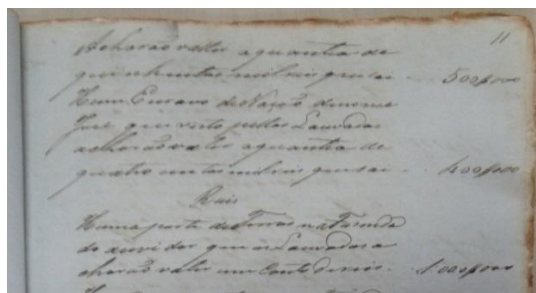 11
acharão valer a quantia de
quinhentos mil reis que sai 500$000
Hum Escravo de Nação de nome
José que visto pellos Louvados
acharão valer a quantia de
quatro centos mil reis que sai 400$000
Rais
Huma parte de Terras na Fazenda
do que os Louvados a
charão valer um Conto de reis. 1000$000